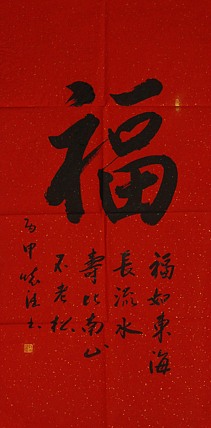 福
福如東海
長流水
壽比南山
不老松
丙申